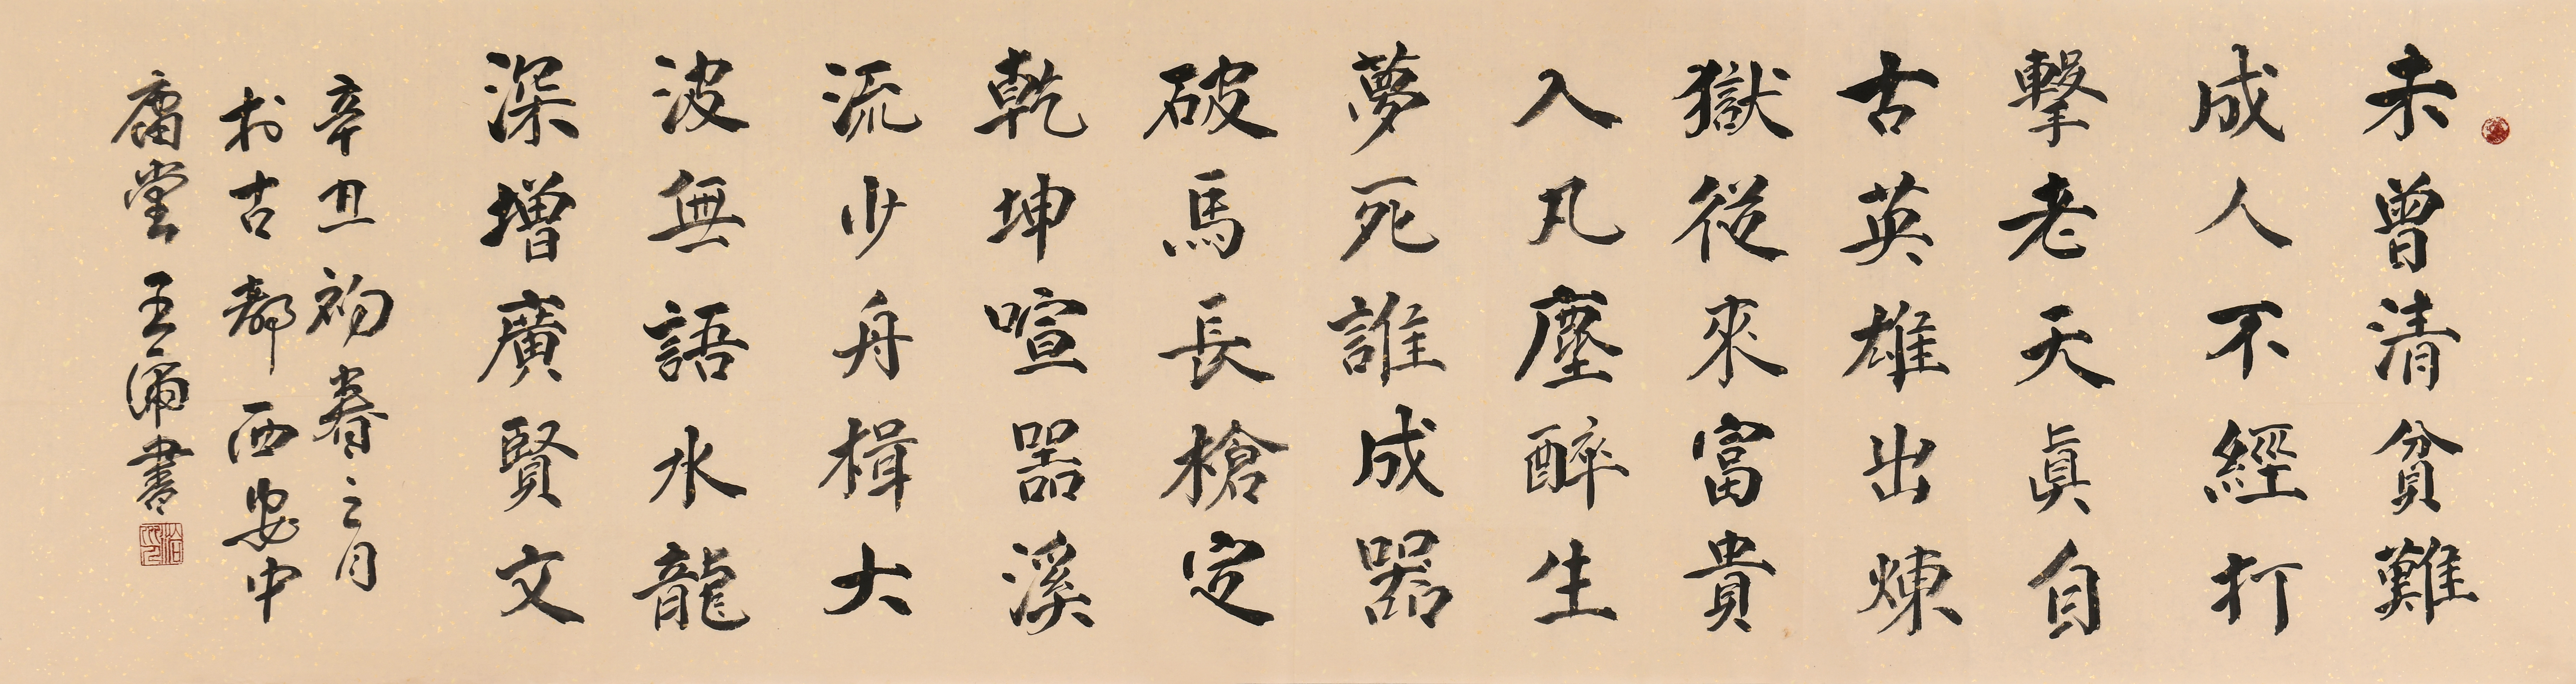 未曾清貧難
成人不經打
擊老天眞自
古英雄出煉
獄從來富貴
入凡塵醉生
夢死誰成器
破馬長槍定
乾坤喧嚣溪
流少舟楫大
波無語水龍
深增廣賢文
辛丑初春之月
於古都西安中
庸堂王浦書